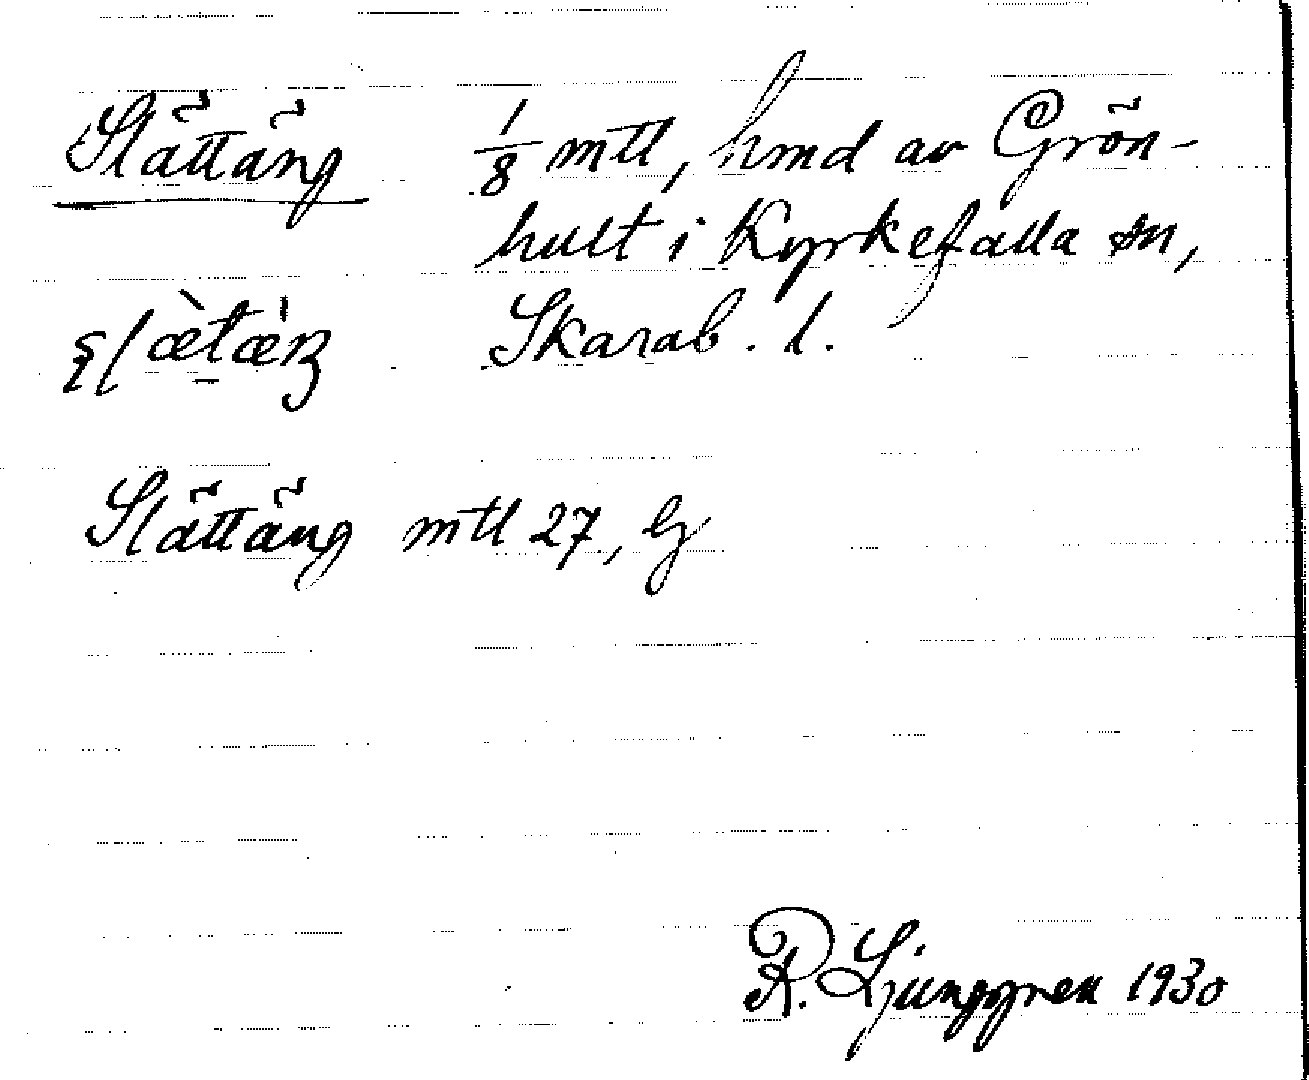 Slättäng 1/8 mtl, hmd av Grön-
hult i Kyrkefalla sn,
Skarab. l.
Slättäng mtl 27, Gj
R. Ljunggren 1930